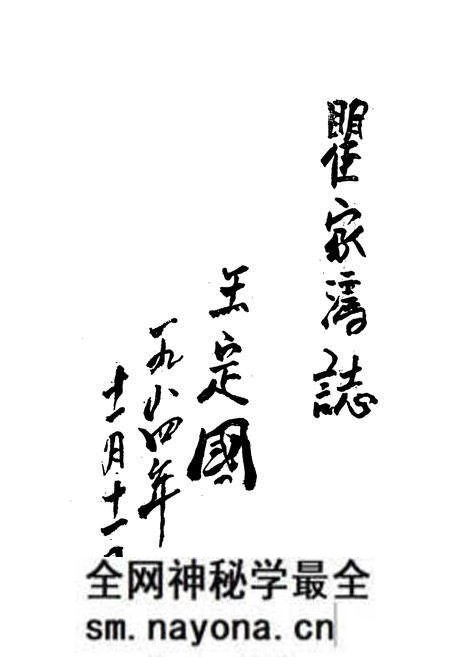 瞿家湾誌
王定國
一九八四年
十一月十一日
全网神秘学最全
sm.nayona.cn